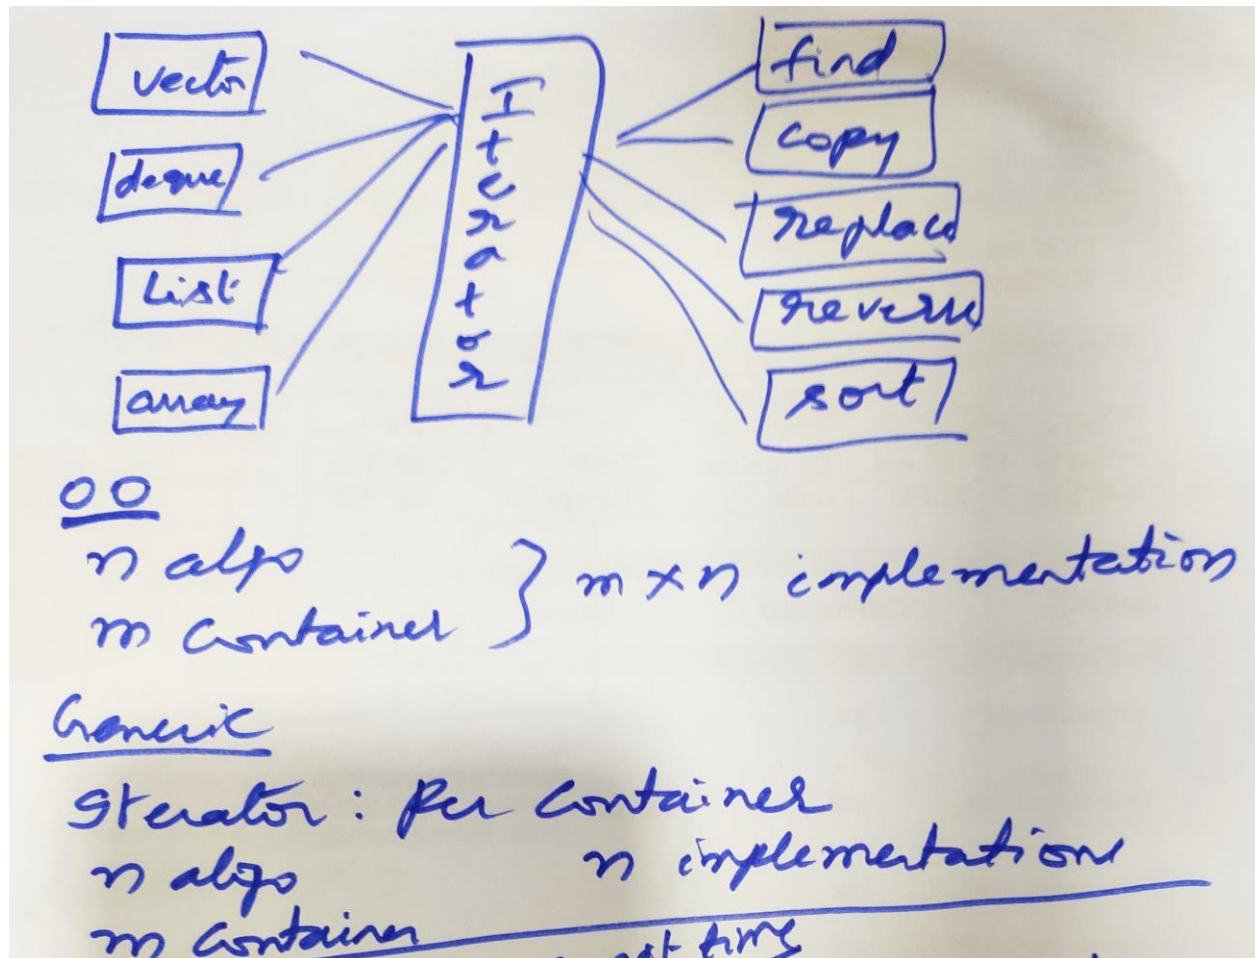 vector
deque
List
array
Iterator
find
copy
replace
reverse
sort
OO
n algo
m Container
} m × n implementation
Generic
Iterator : Per Container
n algo
n implementations
m Container